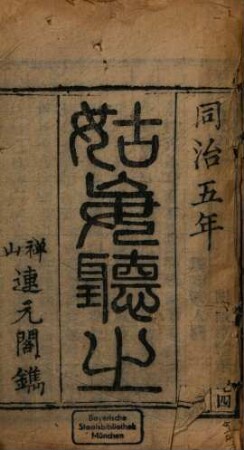 同治五年
姑妄聽之
禅山連元閣鐫
四
Bayerische
Staatsbibliothek
München